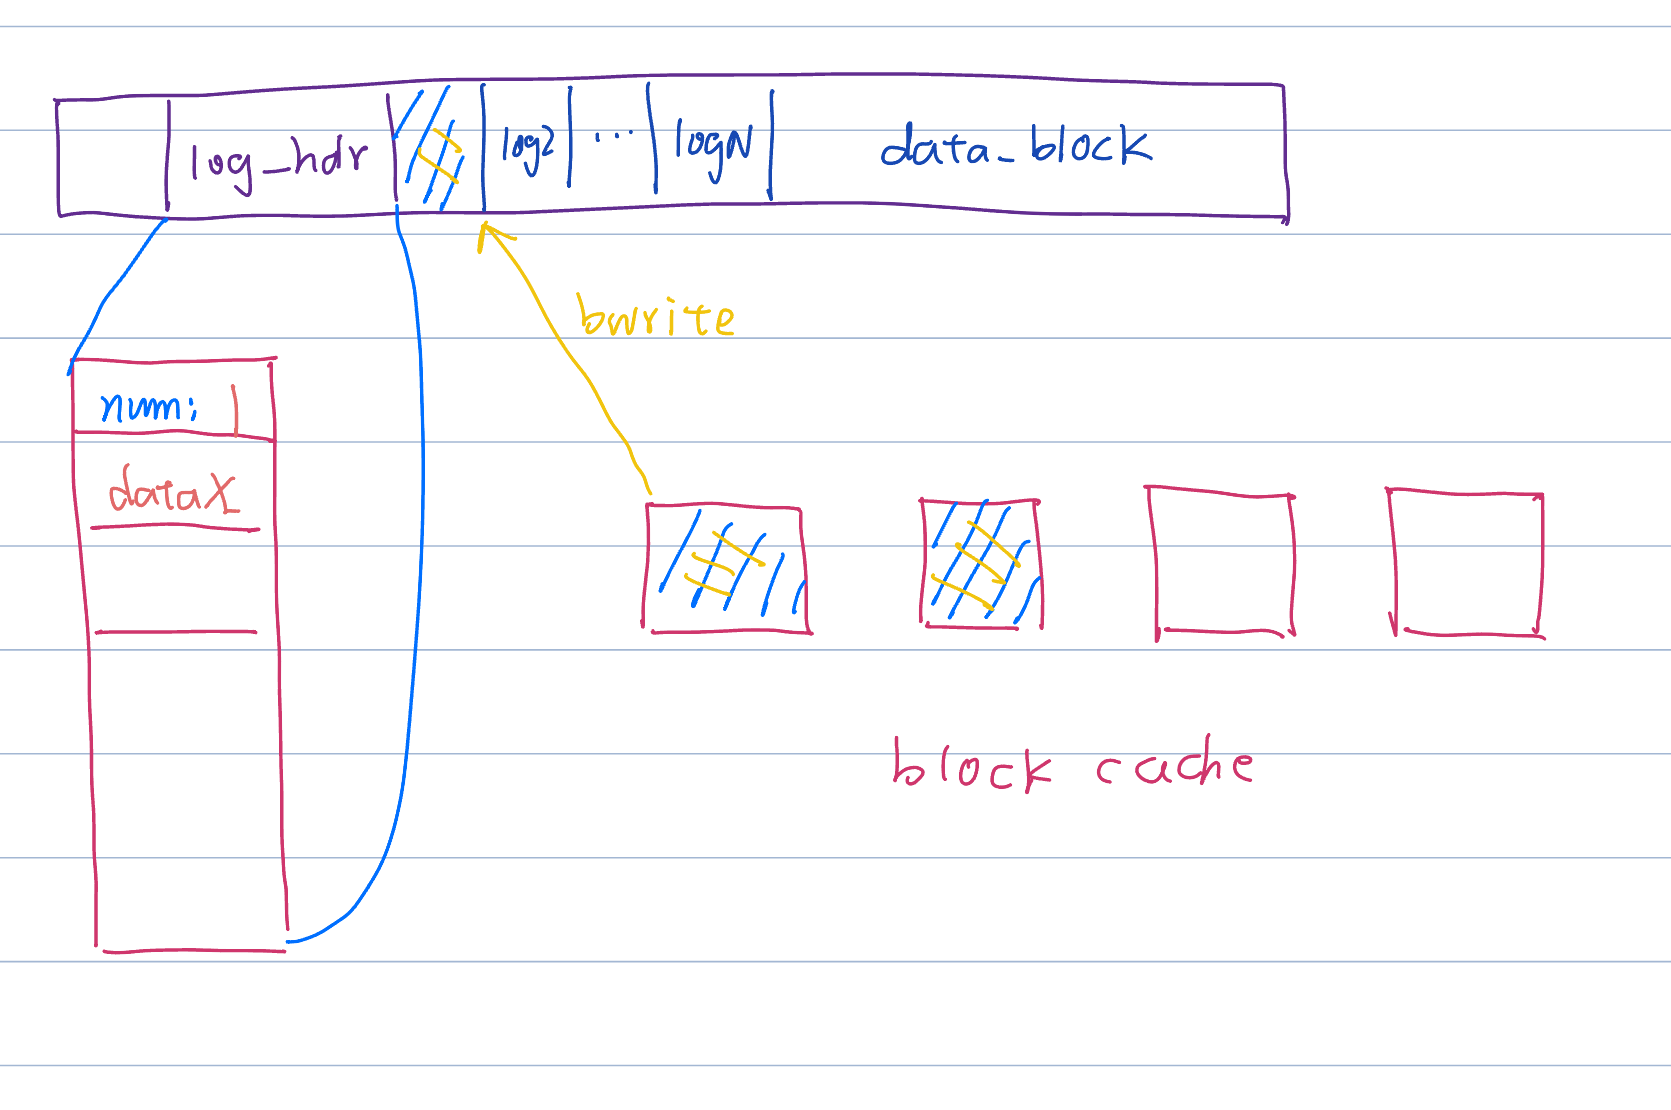 log_hdr log2 ... logN data_block
bwrite
num: 1
dataX
block cache